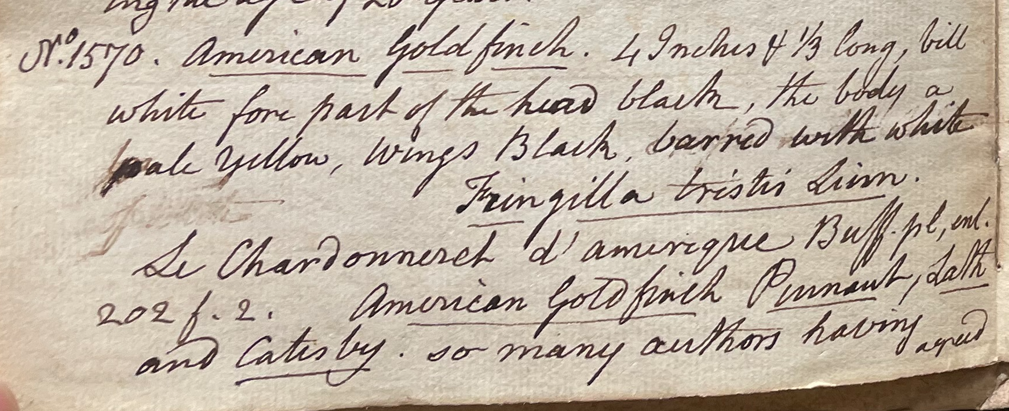 ing the age of 20 years.
No. 1570. American Goldfinch. 4 Inches & 1/3 long, bill
white fore part of the head black, the body a
pale yellow, Wings Black, barred with white
Fringilla tristis Linn.
Le Chardonneret d'amerique Buff. pl, enl.
202 f. 2. American Goldfinch Pennant, Lath
and Catesby. so many authors having agreed